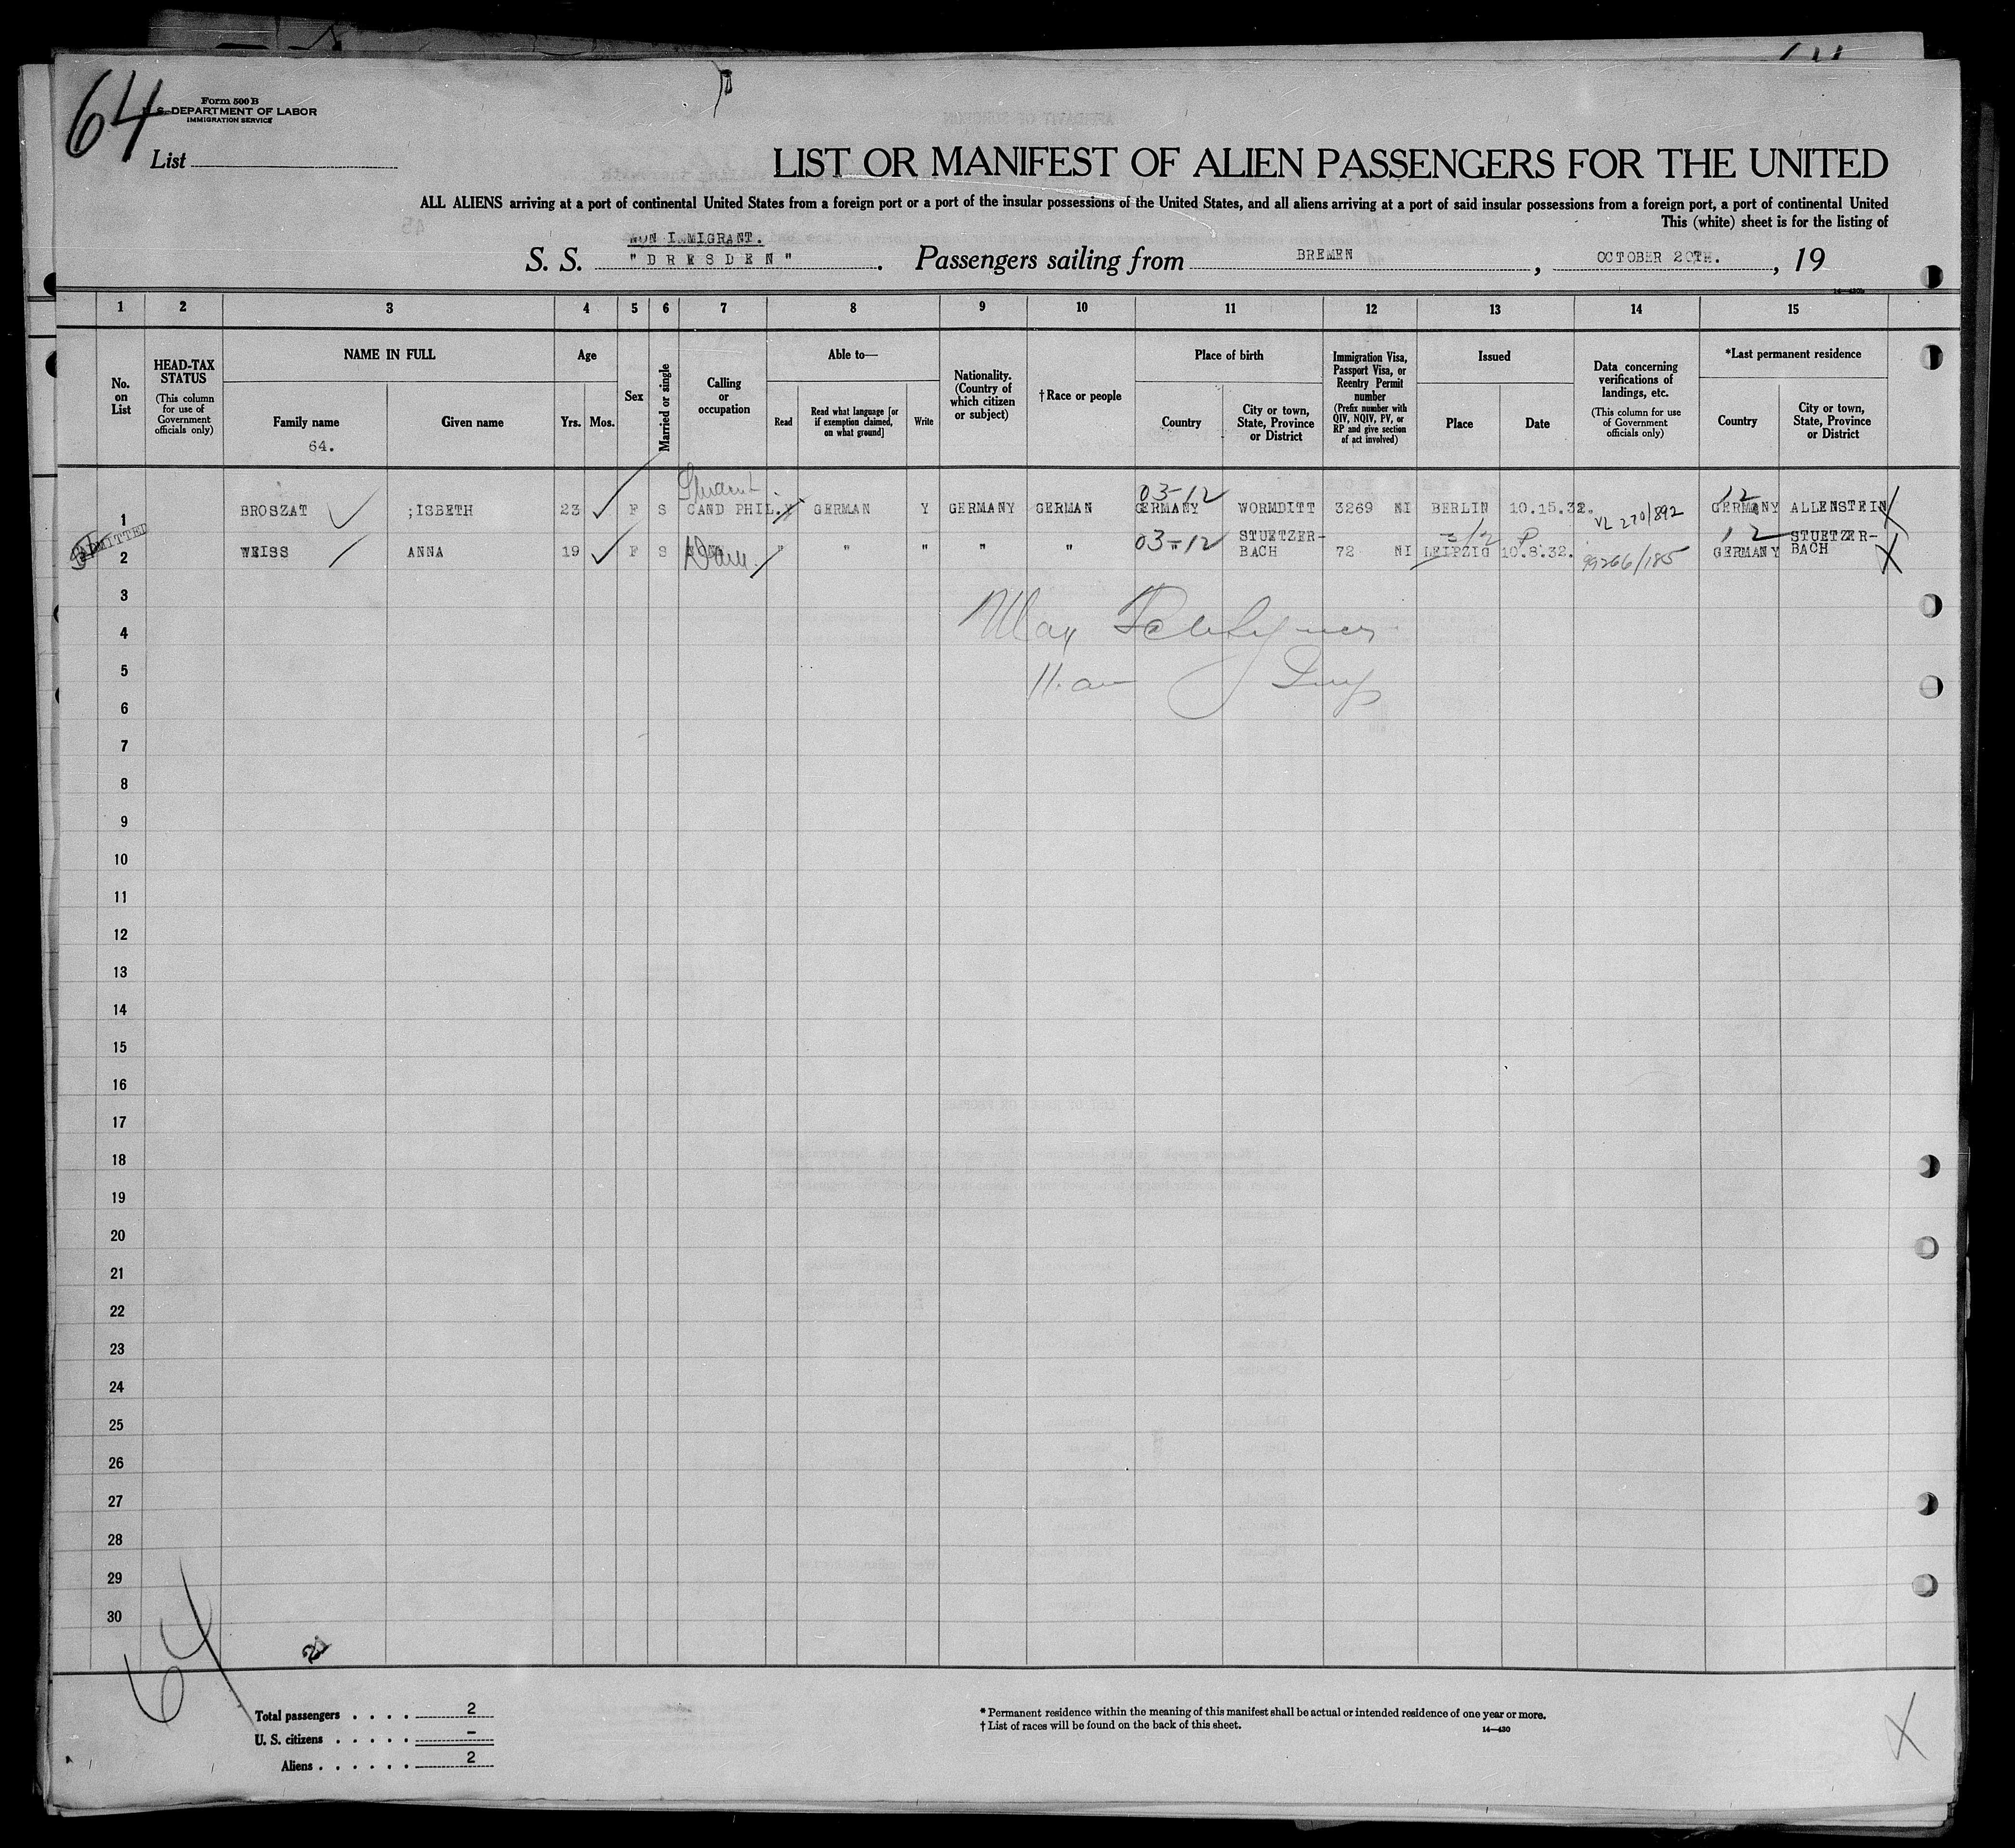 64
Form 500 B
U. S. DEPARTMENT OF LABOR
IMMIGRATION SERVICE
List
LIST OR MANIFEST OF ALIEN PASSENGERS FOR THE UNITED
ALL ALIENS arriving at a port of continental United States from a foreign port or a port of the insular possessions of the United States, and all aliens arriving at a port of said insular possessions from a foreign port, a port of continental United
This (white) sheet is for the listing of
NON IMMIGRANT.
S. S. "DRESDEN". Passengers sailing from BREMEN, OCTOBER 20TH., 19
14-430b
1 2 3 4 5 6 7 8 9 10 11 12 13 14 15
No. on List
HEAD-TAX STATUS (This column for use of Government officials only)
NAME IN FULL
Family name
64.
Given name
Age
Yrs. Mos.
Sex
Married or single
Calling or occupation
Able to—
Read
Read what language [or if exemption claimed, on what ground]
Write
Nationality. (Country of which citizen or subject)
† Race or people
Place of birth
Country
City or town, State, Province or District
Immigration Visa, Passport Visa, or Reentry Permit number (Prefix number with QIV, NQIV, PV, or RP and give section of act involved)
Issued
Place
Date
Data concerning verifications of landings, etc. (This column for use of Government officials only)
*Last permanent residence
Country
City or town, State, Province or District
Student 03-12 12
1 BROSZAT ;ISBETH 23 F S CAND PHIL. Y GERMAN Y GERMANY GERMAN GERMANY WORMDITT 3269 NI BERLIN 10.15.32. VL 270/892 GERMANY ALLENSTEIN
ADMITTED
2 WEISS ANNA 19 F S " " " " " 03-12 " STUETZER-BACH 72 NI LEIPZIG 10.8.32. 99266/185 12 GERMANY STUETZER-BACH
3
4 Max
5 Insp
6
7
8
9
10
11
12
13
14
15
16
17
18
19
20
21
22
23
24
25
26
27
28
29
30
64
Total passengers . . . . 2
U. S. citizens . . . . . –
Aliens . . . . . . 2
* Permanent residence within the meaning of this manifest shall be actual or intended residence of one year or more.
† List of races will be found on the back of this sheet. 14—430